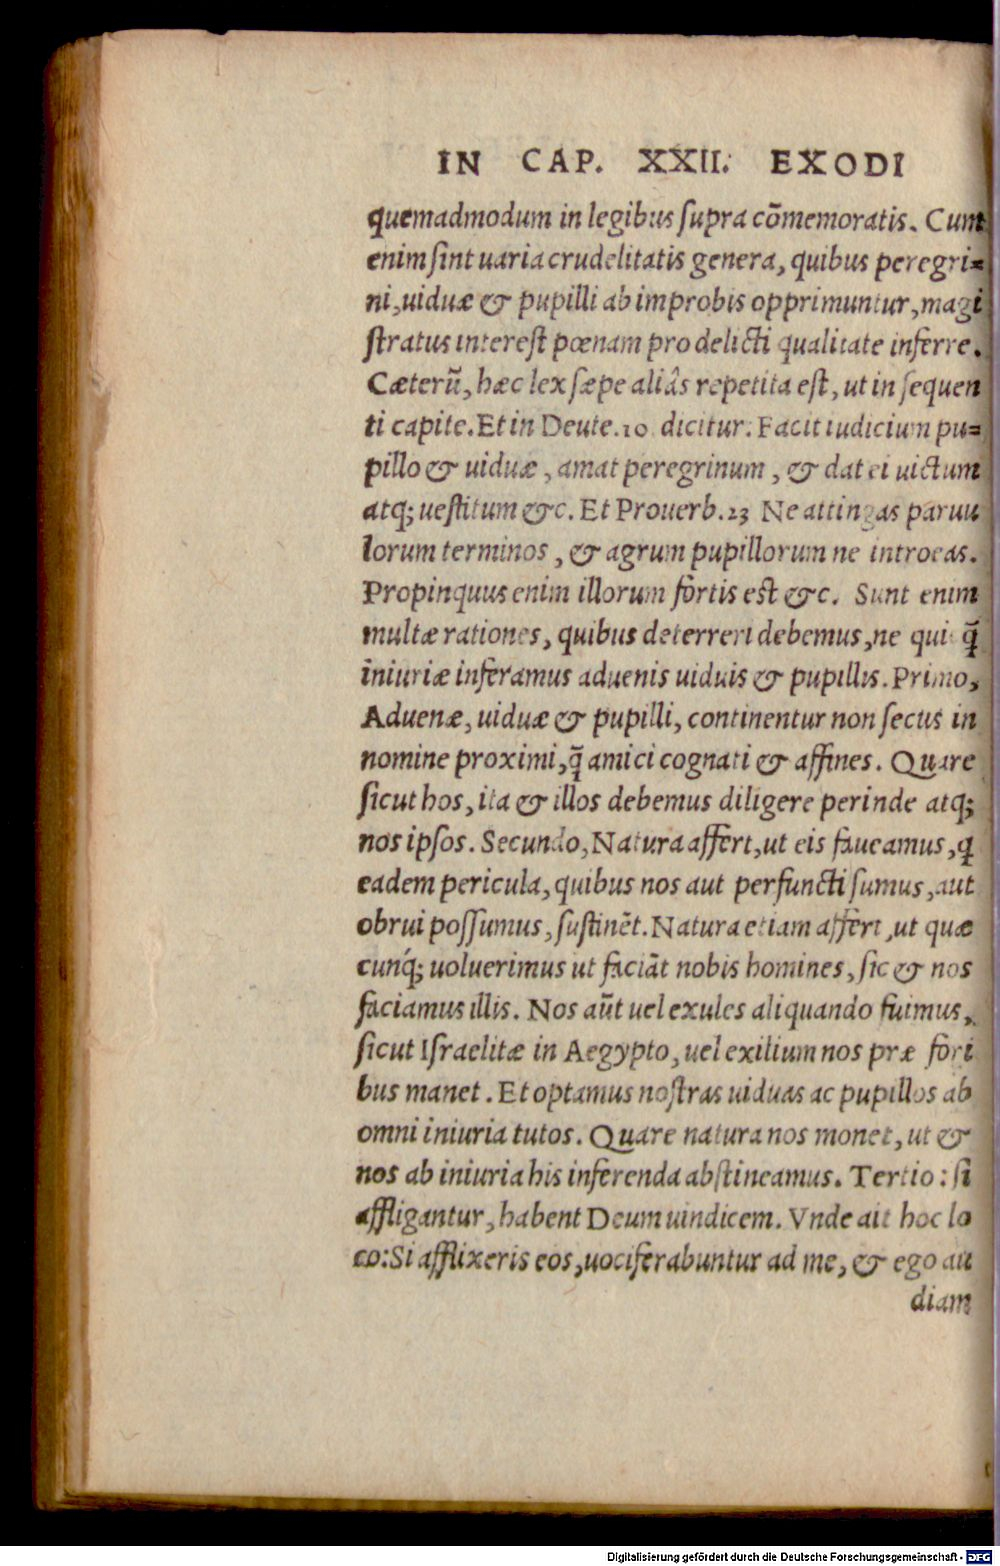 IN CAP. XXII. EXODI
quemadmodum in legibus ſupra cõmemoratis. Cum
enim ſint uaria crudelitatis genera, quibus peregri=
ni, uiduæ & pupilli ab improbis opprimuntur, magi
ſtratus intereſt pœnam pro delicti qualitate inferre.
Cæterũ, hæc lex ſæpe aliâs repetita eſt, ut in ſequen
ti capite. Et in Deute. 10 dicitur. Facit iudicium pu=
pillo & uiduæ, amat peregrinum, & dat ei uictum
atq; ueſtitum &c. Et Prouerb. 23 Ne attingas paruu
lorum terminos, & agrum pupillorum ne introeas.
Propinquus enim illorum fortis est &c. Sunt enim
multæ rationes, quibus deterreri debemus, ne qui q̃
iniuriæ inferamus aduenis uiduis & pupillis. Primo,
Aduenæ, uiduæ & pupilli, continentur non ſecus in
nomine proximi, q̃ amici cognati & affines. Quare
ſicut hos, ita & illos debemus diligere perinde atq;
nos ipſos. Secundo, Natura affert, ut eis faueamus, q̃
eadem pericula, quibus nos aut perfuncti ſumus, aut
obrui poſſumus, ſuſtinẽt. Natura etiam affert, ut quæ
cunq́; uoluerimus ut faciãt nobis homines, ſic & nos
faciamus illis. Nos aũt uel exules aliquando fuimus,
ſicut Iſraelitæ in Aegypto, uel exilium nos præ fori
bus manet. Et optamus noſtras uiduas ac pupillos ab
omni iniuria tutos. Quare natura nos monet, ut &
nos ab iniuria his inferenda abſtineamus. Tertio: ſi
affligantur, habent Deum uindicem. Vnde ait hoc lo
co: Si afflixeris eos, uociferabuntur ad me, & ego au
diam
Digitalisierung gefördert durch die Deutsche Forschungsgemeinschaft - DFG